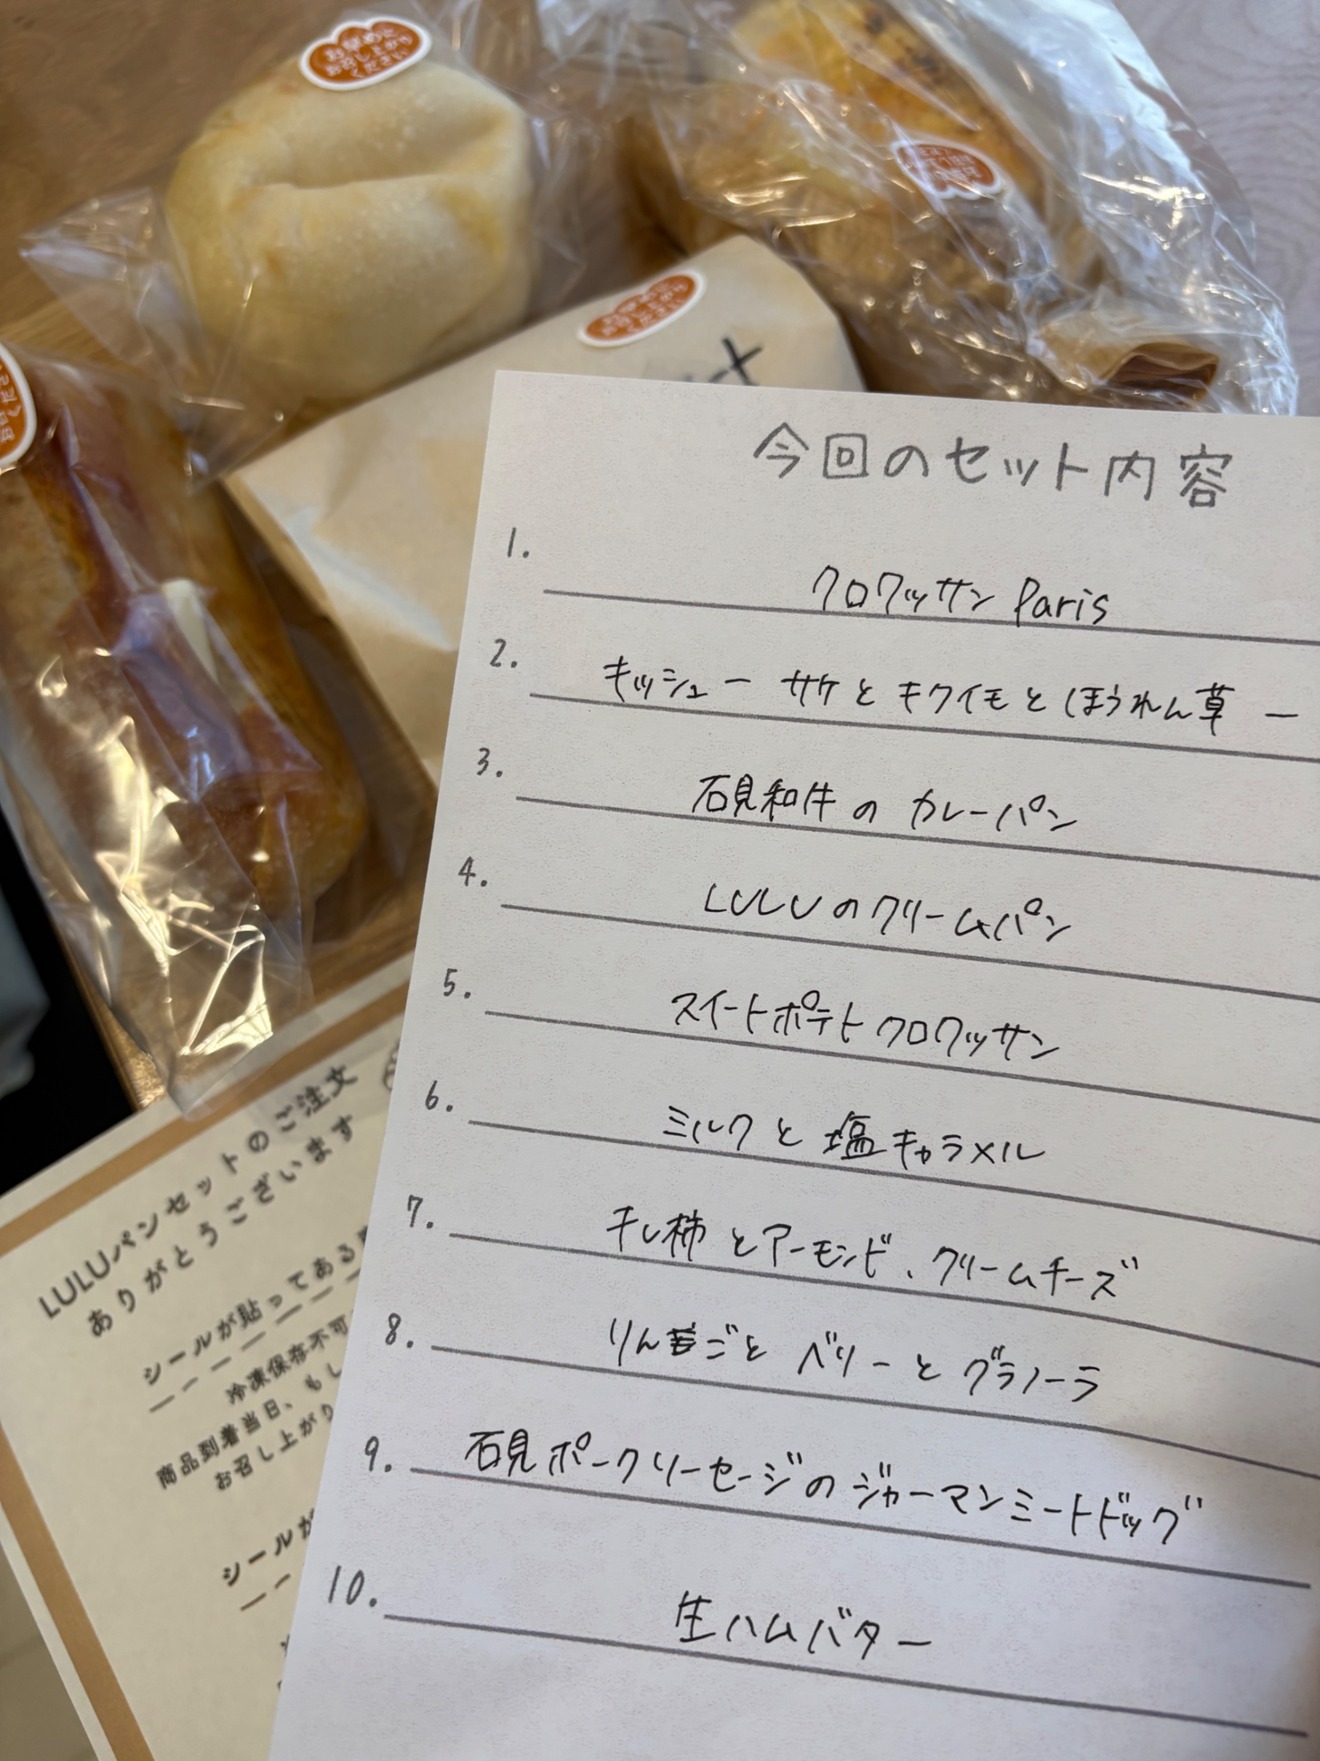 お早めに
お召し上がり
ください
今回のセット内容
1. クロワッサン Paris
2. キッシュ ー サケとキクイモとほうれん草 ー
3. 石見和牛の カレーパン
4. LULUのクリームパン
5. スイートポテトクロワッサン
6. ミルクと塩キャラメル
7. 干し柿とアーモンド、クリームチーズ
8. りんごと ベリーと グラノーラ
9. 石見ポークソーセージの ジャーマンミートドッグ
10. 生ハムバター
LULUパンセットのご注文
ありがとうございます
シールが貼ってある
冷凍保存不可
商品到着当日、もし
お召し上がり
シールが